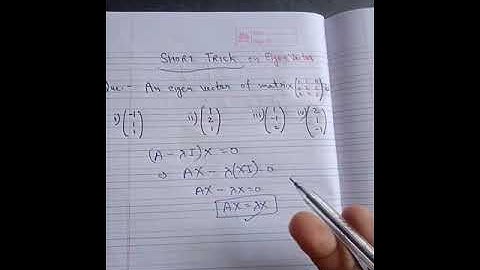 SHORT TRICK on Eigen Vector
Que:- An eigen vector of matrix is
i) (-1 1 1) ii) (1 2 1) iii) (1 -1 2) iv) (2 1 -1)
(A - λI)X = 0
⇒ AX - λ(XI) = 0
AX - λX = 0
AX = λX